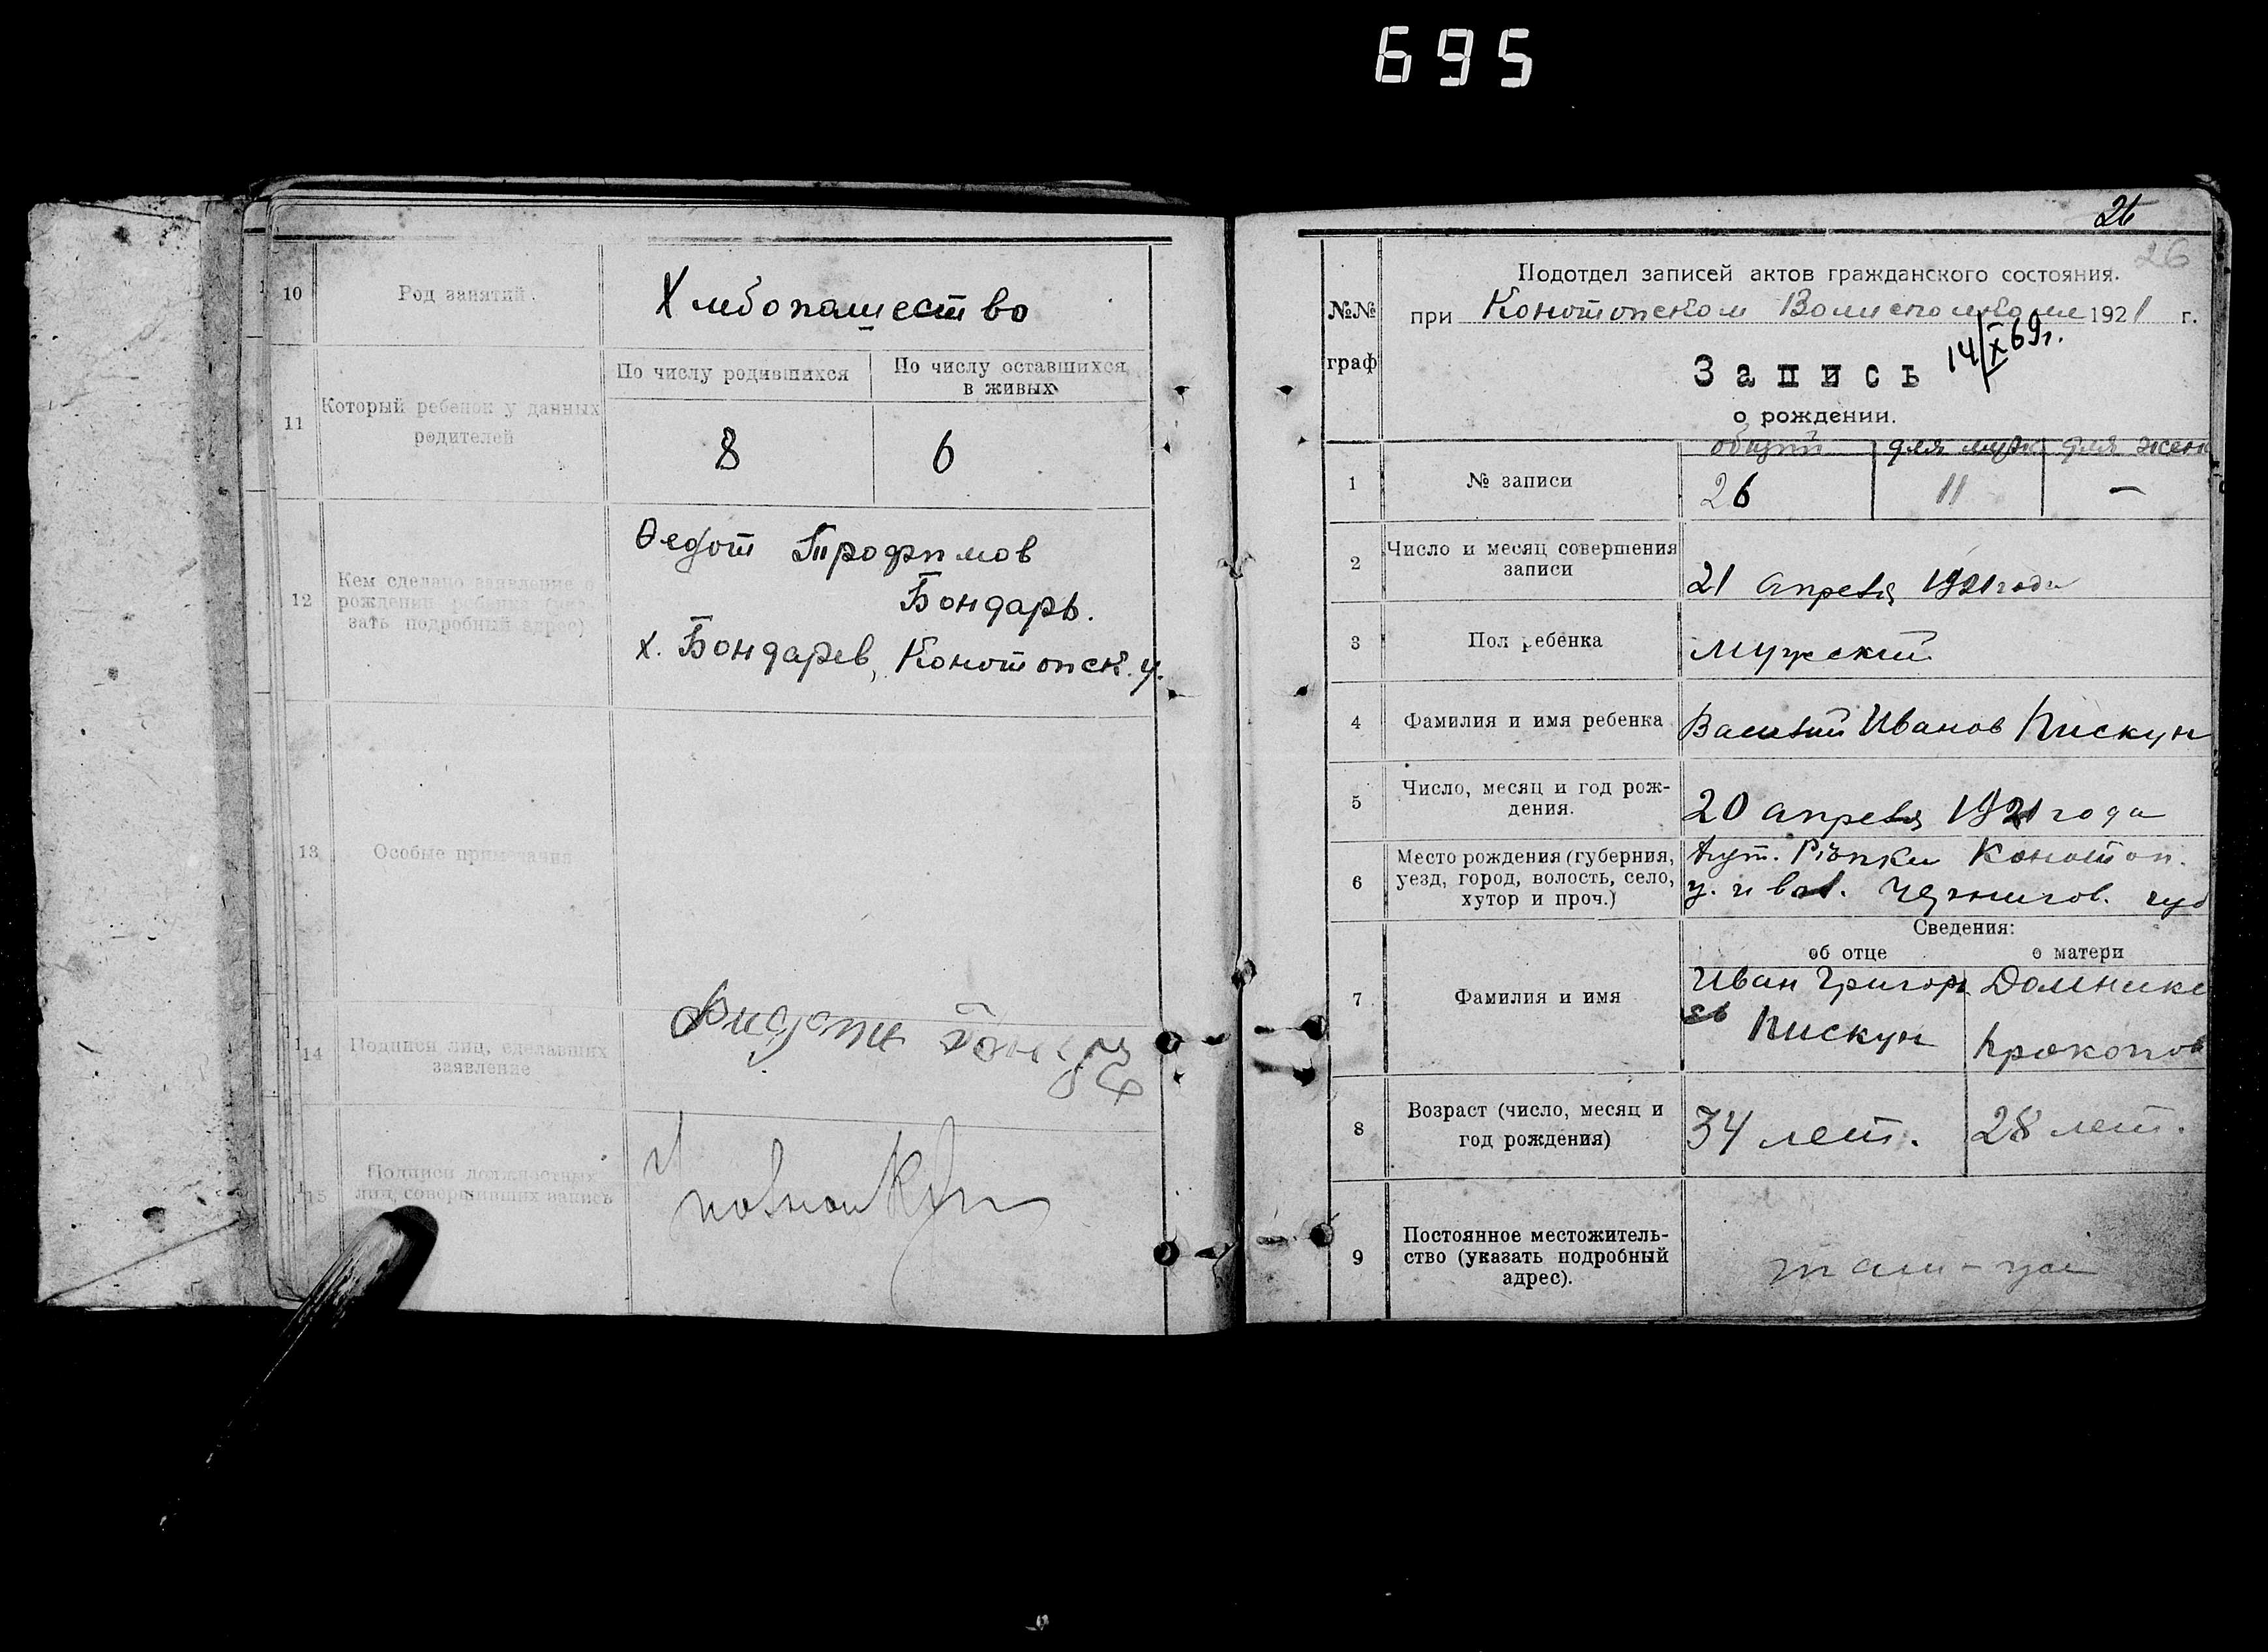 695
10
Род занятий
Хлебопашество
11
Который ребенок у данных
родителей
По числу родившихся
По числу оставшихся
в живых
8
6
12
Кем сделано заявление о
рождении ребенка (ука-
зать подробный адрес)
Ѳедот Трофимов
Бондарь.
х. Бондарев, Конотопск. у.
13
Особые примечания
14
Подписи лиц, сделавших
заявление
15
Подписи должностных
лиц, совершивших запись
26
26
№№
граф
Подотдел записей актов гражданского состояния.
при Конотопском Волисполкоме 1921 г.
14/X 69г.
Запись
о рождении.
1
№ записи
общий
для муж
для жен
26
11
—
2
Число и месяц совершения
записи
21 апреля 1921 года
3
Пол ребенка
мужский
4
Фамилия и имя ребенка
Василий Иванов Пискун
5
Число, месяц и год рож-
дения.
20 апреля 1921 года
6
Место рождения (губерния,
уезд, город, волость, село,
хутор и проч.)
Конотоп.
у. и вол. Чернигов. губ
Сведения:
об отце
о матери
7
Фамилия и имя
Иван Григорь
ев Пискун
Домникі
Прокопов
8
Возраст (число, месяц и
год рождения)
34 лет.
28 лет.
9
Постоянное местожитель-
ство (указать подробный
адрес).
там-же